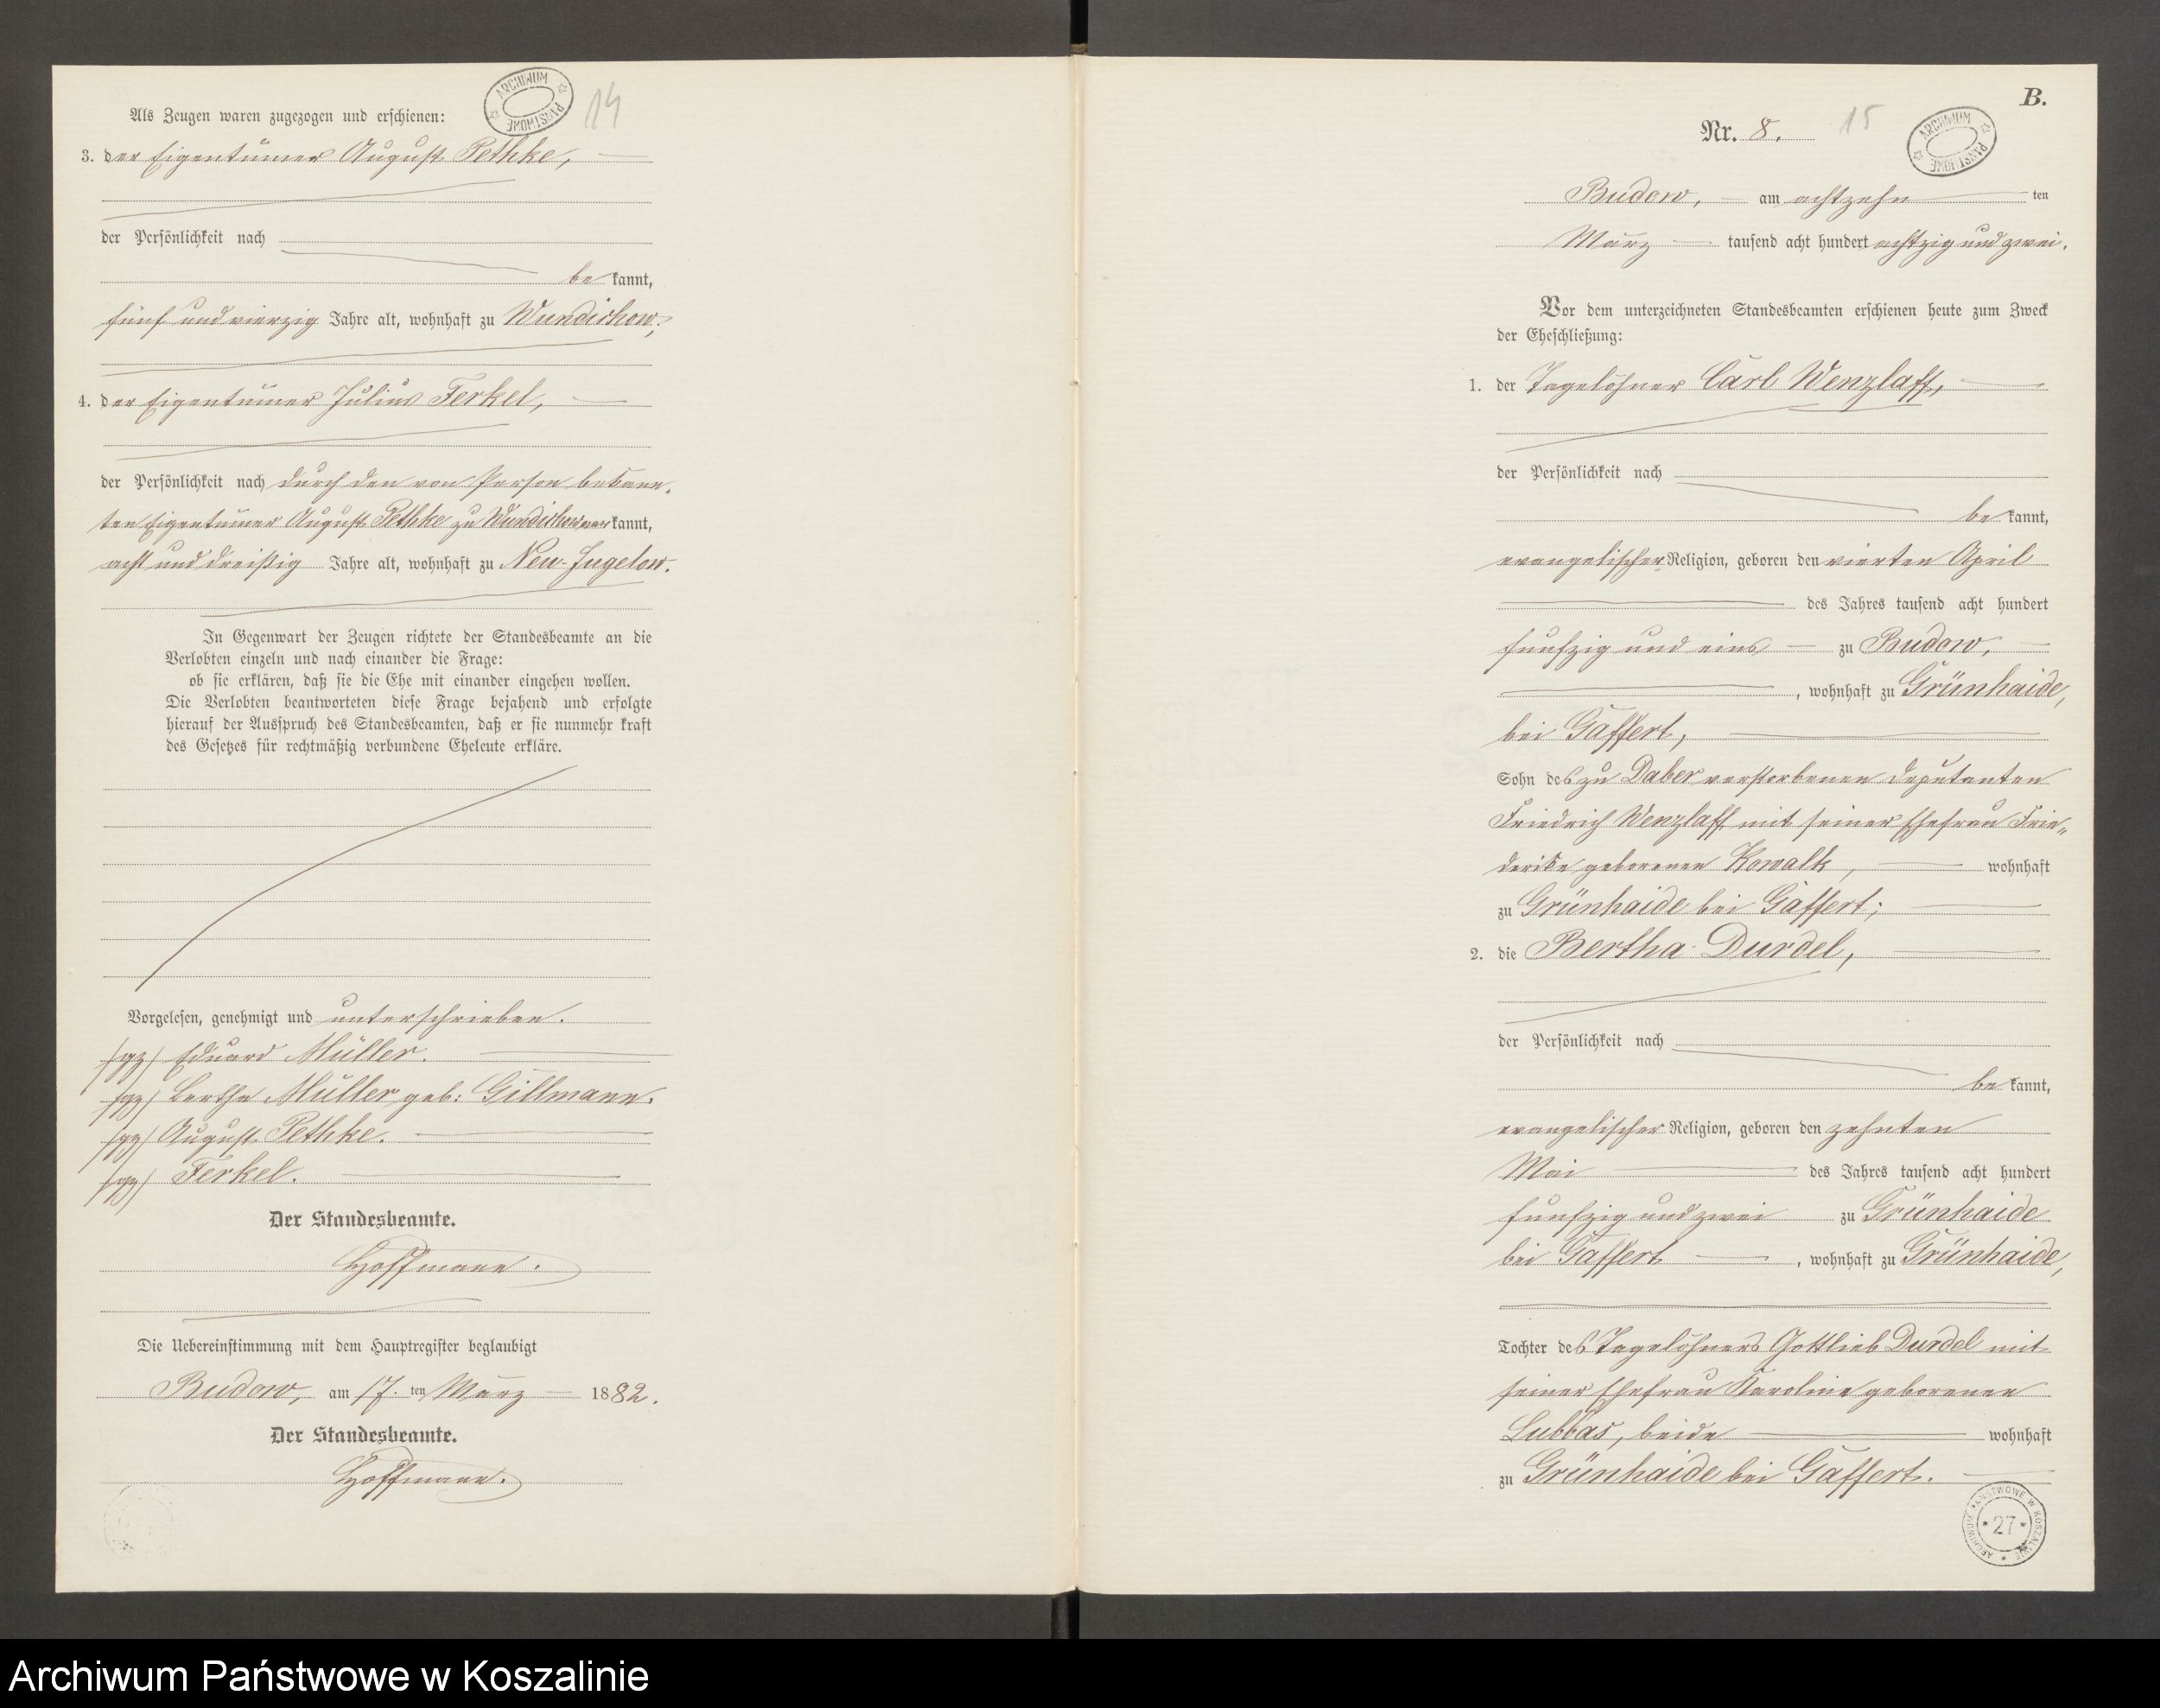 Als Zeugen waren zugezogen und erschienen:
ARCHIWUM PAŃSTWOWE
14
3. der Eigentümer August Pethke,
der Persönlichkeit nach
be kannt,
fünf und vierzig Jahre alt, wohnhaft zu Wundichow;
4. der Eigentümer Julius Ferkel,
der Persönlichkeit nach durch den von Person bekann-
ten Eigentümer August Pethke zu Wundichow aner kannt,
acht und dreißig Jahre alt, wohnhaft zu Neu-Jugelow.
In Gegenwart der Zeugen richtete der Standesbeamte an die
Verlobten einzeln und nach einander die Frage:
ob sie erklären, daß sie die Ehe mit einander eingehen wollen.
Die Verlobten beantworteten diese Frage bejahend und erfolgte
hierauf der Ausspruch des Standesbeamten, daß er sie nunmehr kraft
des Gesetzes für rechtmäßig verbundene Eheleute erkläre.
Vorgelesen, genehmigt und unterschrieben.
/gz/ Eduard Müller.
/gz/ Bertha Müller geb: Gillmann.
/gz/ August Pethke.
/gz/ Ferkel.
Der Standesbeamte.
Hoffmann.
Die Uebereinstimmung mit dem Hauptregister beglaubigt
Budow, am 17. ten März 1882.
Der Standesbeamte.
Hoffmann.
B.
Nr. 8.
15
ARCHIWUM PAŃSTWOWE
Budow, am achtzehn ten
März tausend acht hundert achtzig und zwei.
Vor dem unterzeichneten Standesbeamten erschienen heute zum Zweck
der Eheschließung:
1. der Tagelöhner Carl Wenzlaff,
der Persönlichkeit nach
be kannt,
evangelischer Religion, geboren den vierten April
des Jahres tausend acht hundert
funfzig und eins zu Budow,
, wohnhaft zu Grünhaide,
bei Gaffert,
Sohn des zu Daber verstorbenen Deputanten
Friedrich Wenzlaff mit seiner Ehefrau Frie-
derike geborenen Kowalk, wohnhaft
zu Grünhaide bei Gaffert;
2. die Bertha Durdel,
der Persönlichkeit nach
be kannt,
evangelischer Religion, geboren den zehnten
Mai des Jahres tausend acht hundert
funfzig und zwei zu Grünhaide
bei Gaffert , wohnhaft zu Grünhaide,
Tochter des Tagelöhners Gottlieb Durdel mit
seiner Ehefrau Karoline geborenen
Lubbas, beide wohnhaft
zu Grünhaide bei Gaffert.
ARCHIWUM PAŃSTWOWE W KOSZALINIE
* 27 *
Archiwum Państwowe w Koszalinie